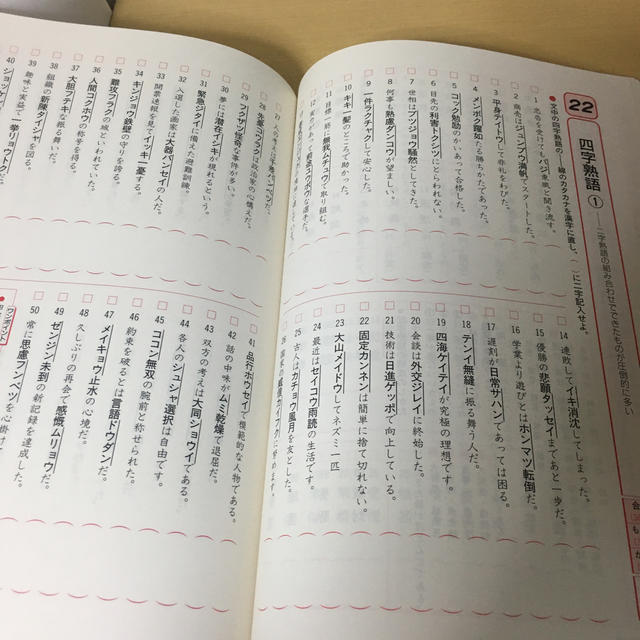 22
四字熟語 ①
二字熟語の組み合わせでできたものが圧倒的に多い
●文中の四字熟語の――線のカタカナを漢字に直し、(　)に二字記入せよ。
1 忠告を受けてもバジ東風と聞き流す。
2 商売はジュンプウ満帆でスタートした。
3 平身テイトウして非礼をわびた。
4 メンボク躍如たる勝ちかたであった。
5 コック勉励のかいあって合格した。
6 目先の利害トクシツにとらわれない。
7 世相はブツジョウ騒然としてきた。
8 何事も熟慮ダンコウが望ましい。
9 一件ラクチャクして安心した。
10 キキ一髪のところで助かった。
11 目標一筋に無我ムチュウで取り組む。
14 連敗してイキ消沈してしまった。
15 優勝の悲願タッセイまであと一歩だ。
16 学業より遊びとはホンマツ転倒だ。
17 遅刻が日常サハンであっては困る。
18 テンイ無縫に振る舞う人だ。
19 四海ケイテイが究極の理想です。
20 会談は外交ジレイに終始した。
21 技術は日進ゲッポで向上している。
22 固定カンネンは簡単に捨て切れない。
23 大山メイドウしてネズミ一匹
24 最近はセイコウ雨読の生活です。
25 古人はカチョウ風月を友とした。
28 先憂コウラクは政治家の心構えだ。
29 フクザツ怪奇な事件が多い。
30 夢には潜在イシキが現れるという。
31 緊急ジタイに備えた避難訓練。
32 入選した画家は大器バンセイの人だ。
33 開票速報を見てイッキ一憂する。
34 キンジョウ鉄壁の守りを誇る。
35 難攻フラクの城といわれていた。
36 人間コクホウの称号を得る。
37 大胆フテキな振る舞いだ。
38 組織の新陳タイシャを図る。
39 趣味と実益で一挙リョウトクだ。
40
41 品行ホウセイで模範的な人物である。
42 話の中味がムミ乾燥で退屈だ。
43 双方の考えは大同ショウイである。
44 各人のシュシャ選択は自由です。
45 ココン無双の腕前と称せられた。
46 約束を破るとは言語ドウダンだ。
47 メイキョウ止水の心境だ。
48 久しぶりの再会で感慨ムリョウだ。
49 ゼンジン未到の新記録を達成した。
50 常に思慮フンベツを心掛け
ワンポイント